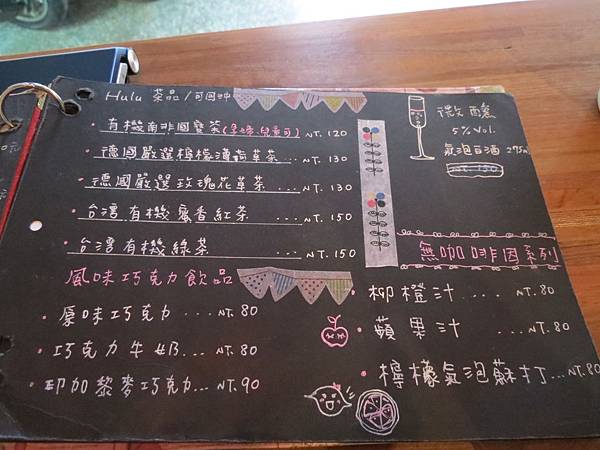 Hulu 茶品/可回沖
有機南非國寶茶(孕婦.兒童可) NT. 120
德國嚴選檸檬薄荷草茶... NT. 130
德國嚴選玫瑰花草茶 ... NT. 130
台灣有機蜜香紅茶 ... NT. 150
台灣有機綠茶 ... NT. 150
風味巧克力飲品
原味巧克力 ... NT. 80
巧克力牛奶... NT. 80
印加藜麥巧克力... NT. 90
微醺
5% Vol.
氣泡白酒 275ml
NT. 150
無咖啡因系列
柳橙汁 .... NT. 80
蘋果汁 ... NT. 80
檸檬氣泡蘇打...NT. 80